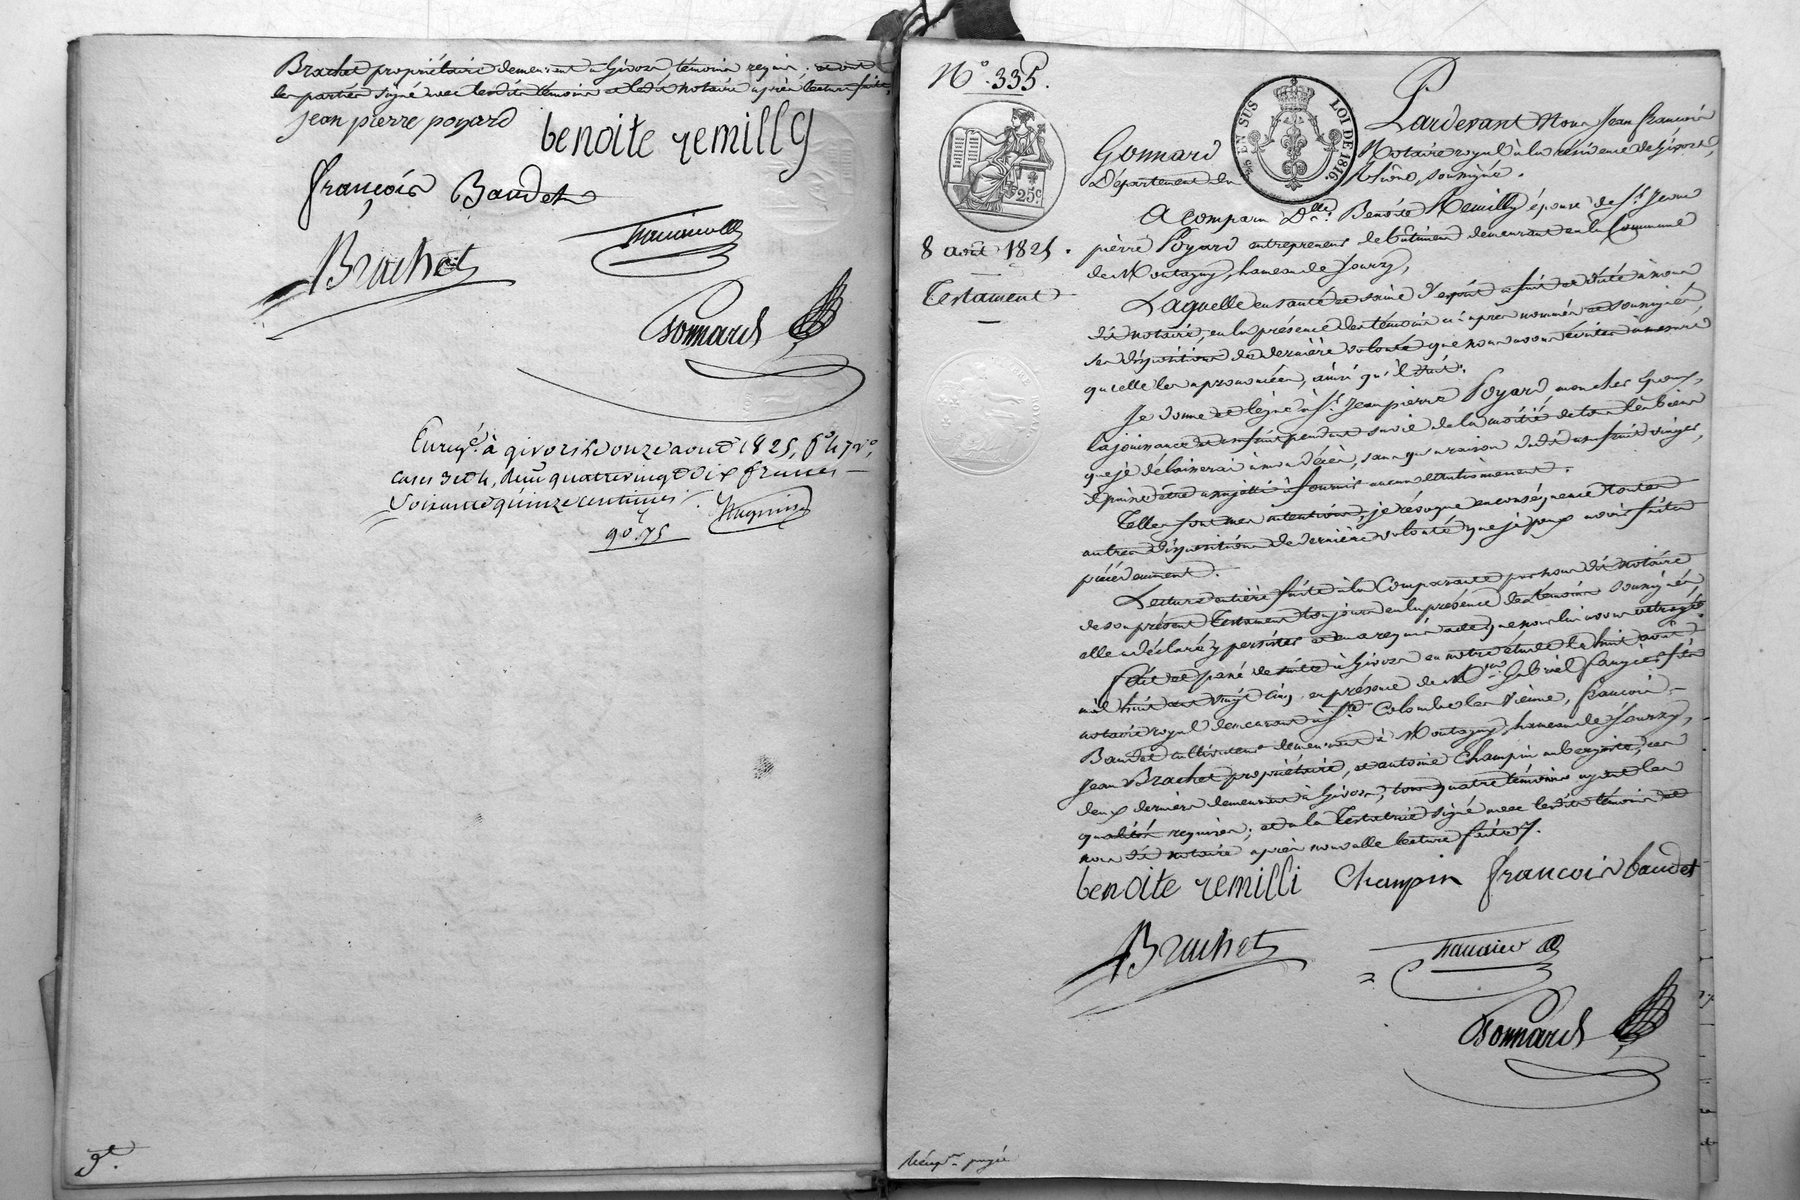 Brachet propriétaire demeurant à Givors témoins requis. et ont
les parties signé avec lesdits témoins et ledit notaire après lecture faite.
jean pierre poyard
benoite remilly
françois Baudet
Brachet
Gonnard
Enreg.é à givors le douze aout 1825, f.o 47 v.o
cases 3 et 4, deux quatre vingt dix francs
soixante quinze centimes
90.75
3e.
N.o 335.
25c.
EN SUS
LOI DE 1816.
8 août 1825.
Testament
Pardevant Nous Jean françois
Gonnard Notaire royal à la résidence de Givors,
Département du Rhône, soussigné.
A comparu D.lle Benoite Remilly épouse de S.r Jean
pierre Poyard entrepreneur de bâtiment demeurant en la Commune
de Montagny, hameau de Sourzy,
Laquelle en santé et saine d'esprit a fait et dicté à nous
dit notaire, en la présence des témoins ci-après nommés et soussignés,
ses dispositions de dernière volonté que nous avons écrites à mesure
qu'elle les a prononcées, ainsi qu'il suit.
Je donne et lègue à S.r Jean pierre Poyard, mon cher époux,
la jouissance et usufruit pendant sa vie de la moitié de tous les biens
que je délaisserai à mon décès, sans qu'à raison dudit usufruit il
puisse être assujetti à fournir aucun cautionnement.
Telles sont mes intentions, je révoque en conséquence toutes
autres dispositions de dernière volonté que je peux avoir faites
précédemment.
Lecture entière faite à la Comparante par nous dit notaire
de son présent Testament toujours en la présence des témoins soussignés,
elle a déclaré y persister et en a requis acte que nous lui avons octroyé.
Fait et passé de suite à Givors en notre étude le huit août
mil huit cent vingt cinq, en présence de M.rs Gabriel faugier fils
notaire royal demeurant à S.te Colombe les Vienne, françois
Baudet cultivateur demeurant à Montagny, hameau de Sourzy,
Jean Brachet propriétaire, et antoine Champin aubergiste, ces
deux derniers demeurant à Givors, tous quatre témoins ayant les
qualités requises; et a la Testatrice signé avec lesdits témoins et
nous dit notaire après nouvelle lecture faite.
benoite remilli Champin françois baudet
Brachet
Gonnard